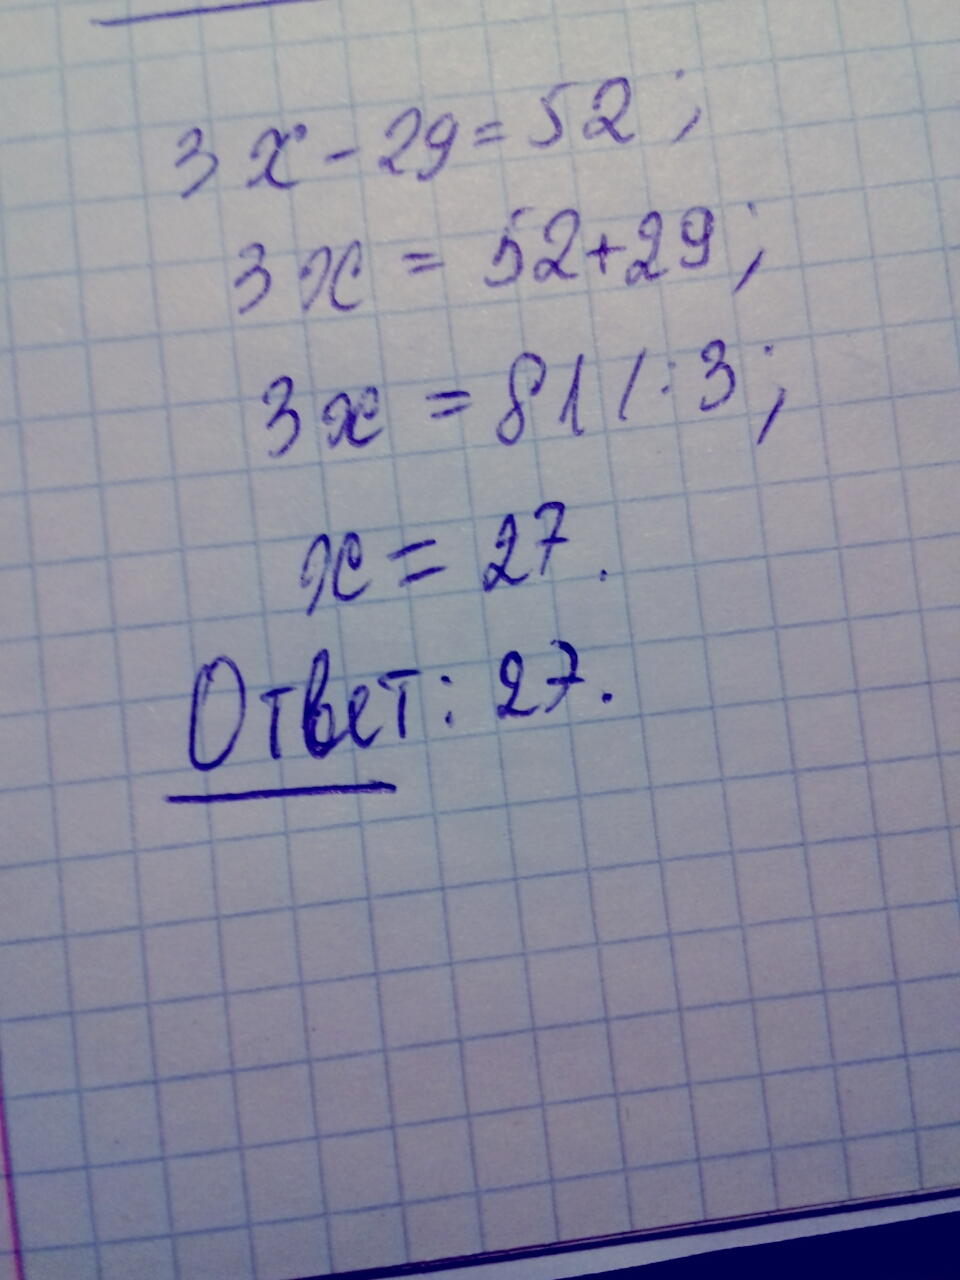 3x - 29 = 52;
3x = 52+29;
3x = 81 /:3;
x = 27.
Ответ: 27.